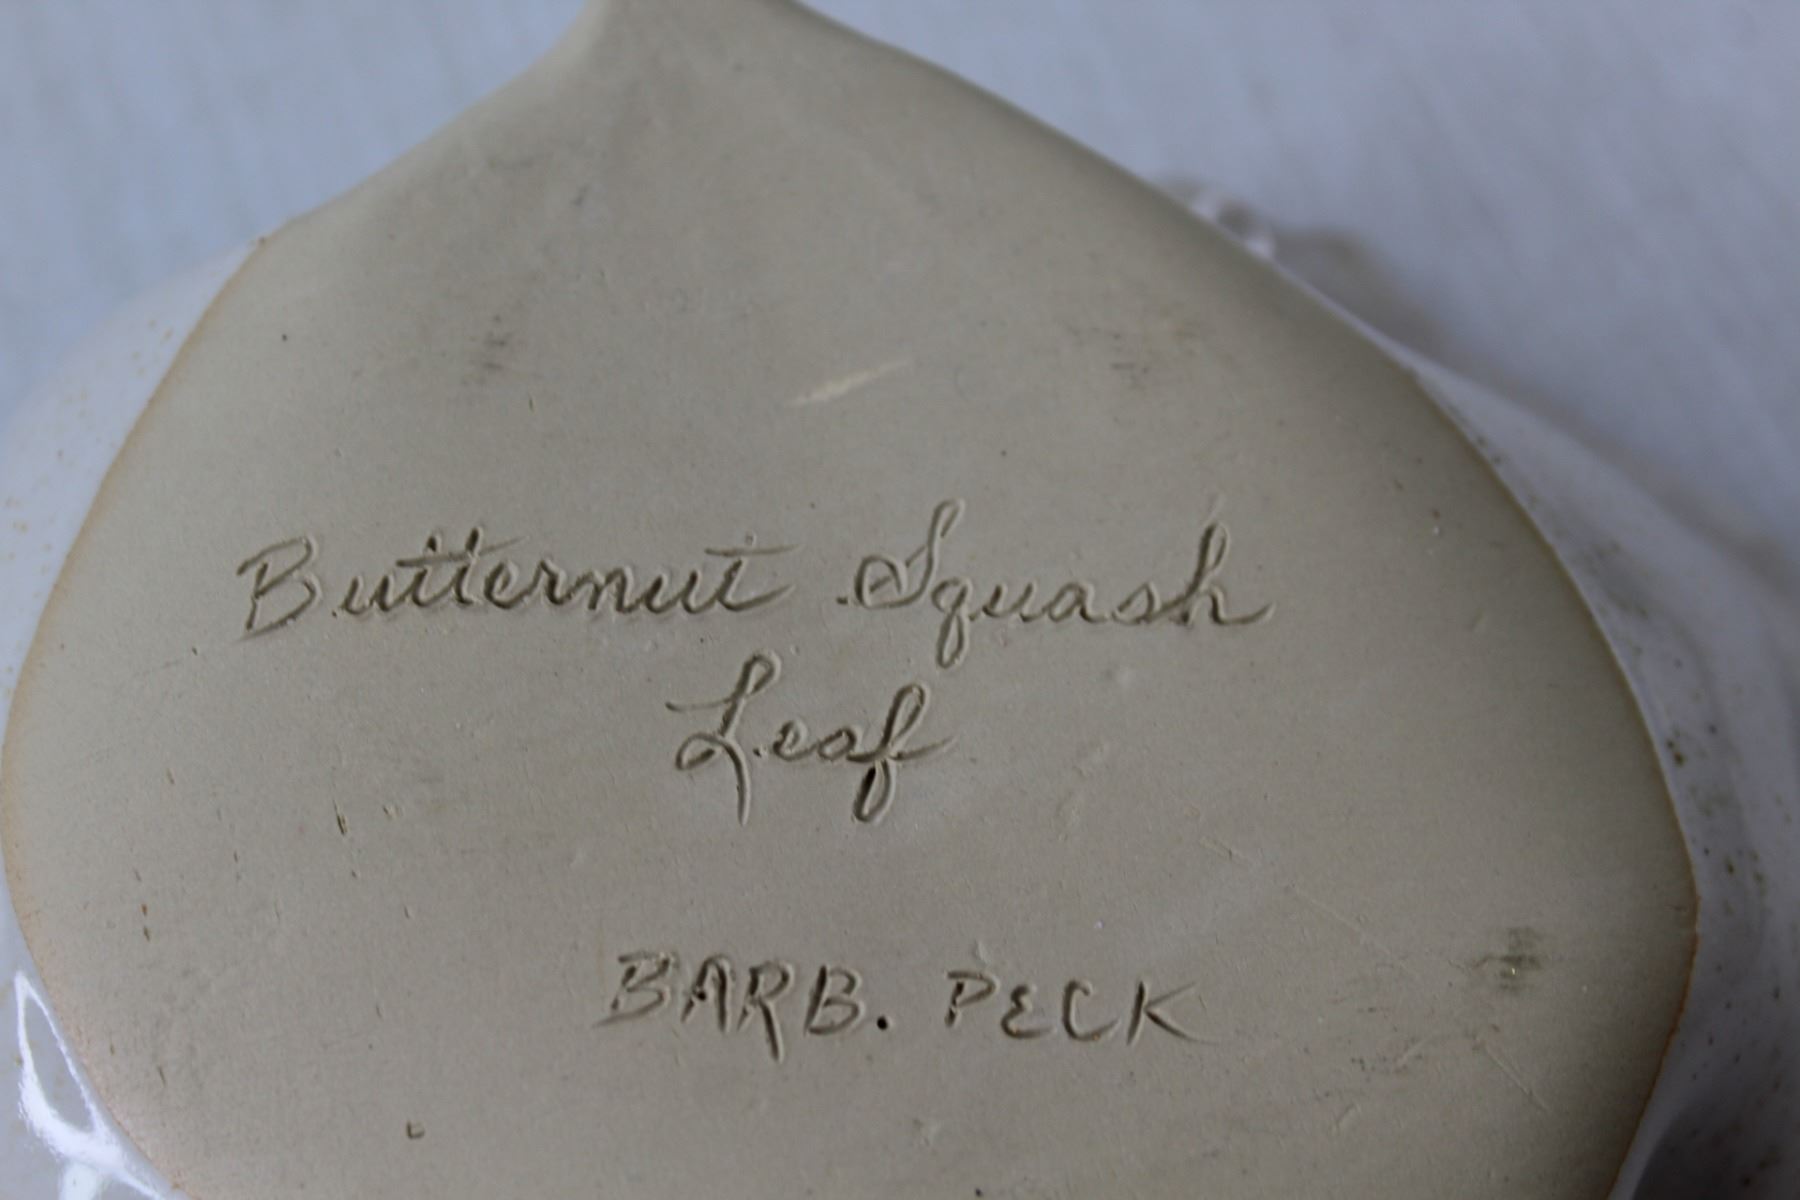 Butternut Squash
Leaf
BARB. PECK